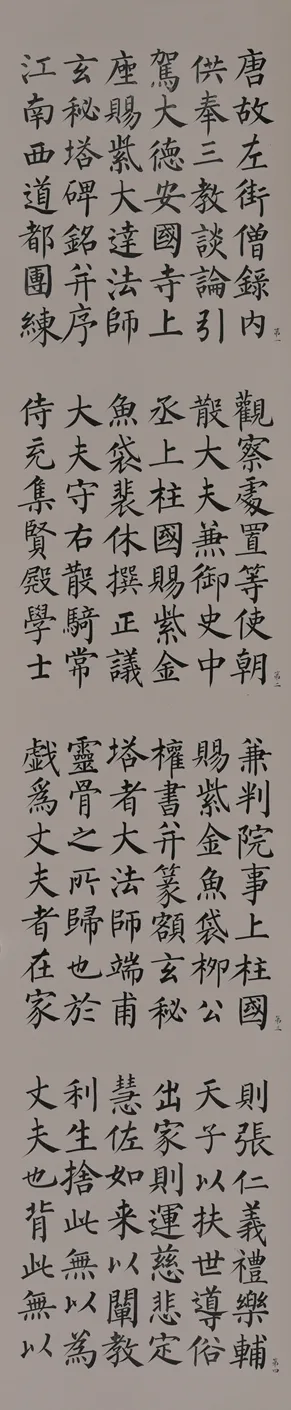 唐故左街僧録内
供奉三教談論引
駕大德安國寺上
座賜紫大達法師
玄秘塔碑銘并序
江南西道都團練
第一
觀察處置等使朝
散大夫兼御史中
丞上柱國賜紫金
魚袋裴休撰正議
大夫守右散騎常
侍充集賢殿學士
第二
兼判院事上柱國
賜紫金魚袋柳公
權書并篆額玄秘
塔者大法師端甫
靈骨之所歸也於
戲為丈夫者在家
第三
則張仁義禮樂輔
天子以扶世導俗
出家則運慈悲定
慧佐如来以闡教
利生捨此無以為
丈夫也背此無以
第四